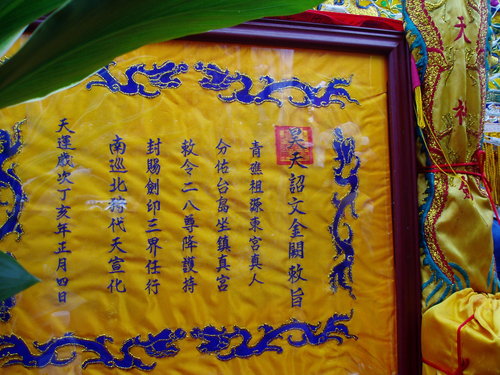 昊天詔文金闕敕旨
青礁祖源東宮真人
分佑台島坐鎮真宮
敕令二八尊降護持
封賜劍印三界任行
南巡北狩代天宣化
天運歲次丁亥年正月四日
天神